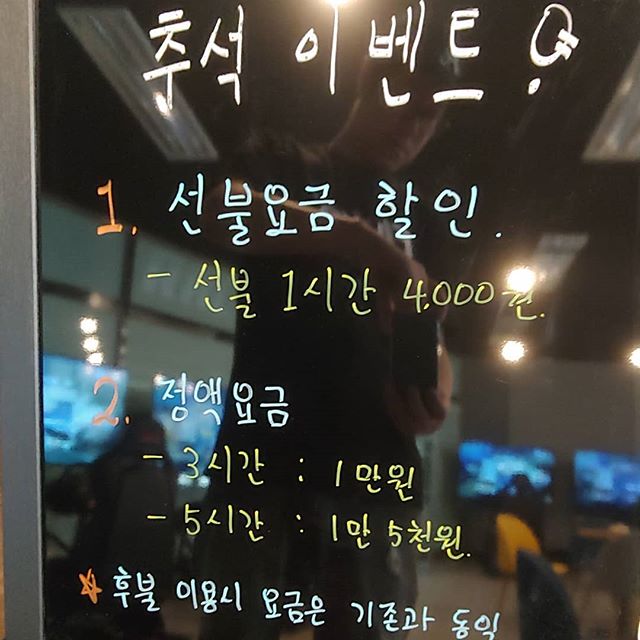 추석 이벤트!
1. 선불요금 할인.
- 선불 1시간 4,000원.
2. 정액요금
- 3시간 : 1만원
- 5시간 : 1만 5천원.
☆ 후불 이용시 요금은 기존과 동일